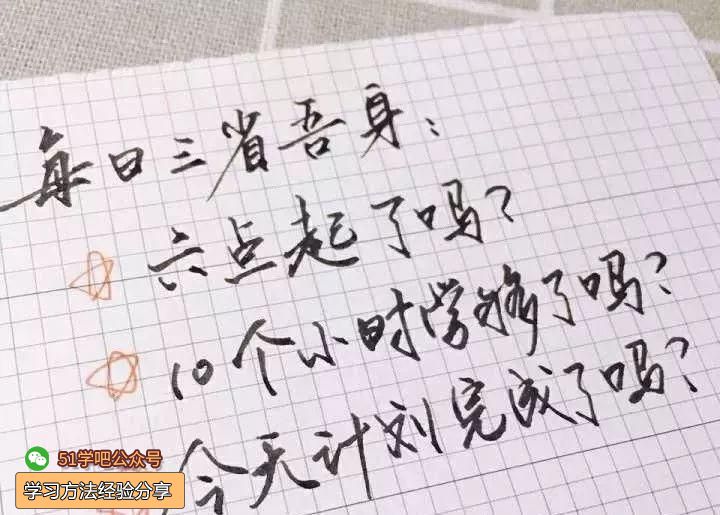 每日三省吾身：
六点起了吗？
10个小时学够了吗？
今天计划完成了吗？
51学吧公众号
学习方法经验分享